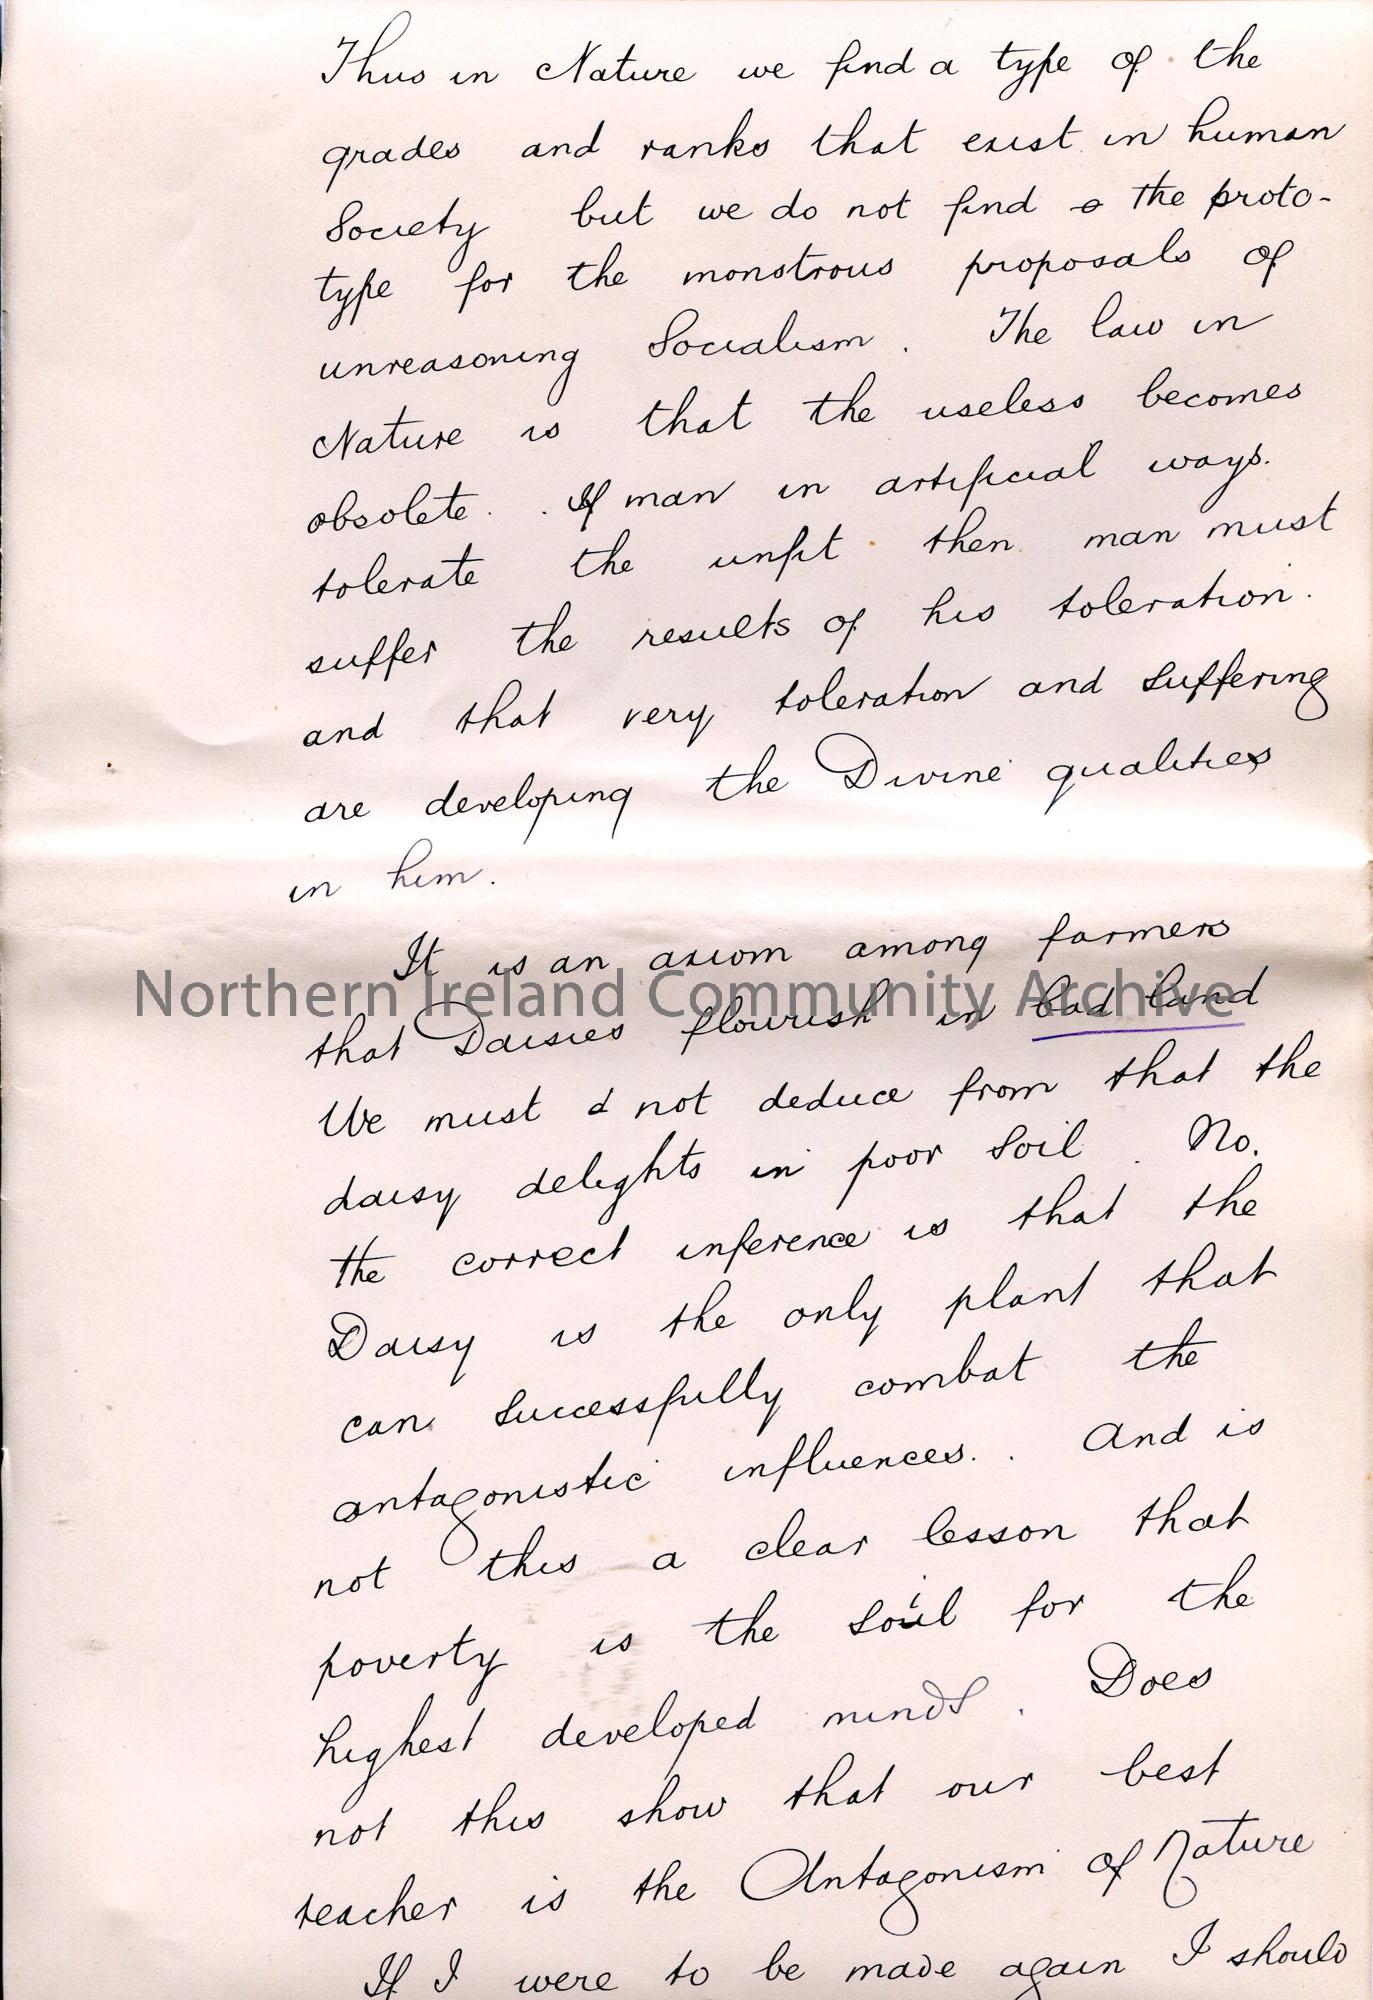 Thus in Nature we find a type of the
grades and ranks that exist in human
Society but we do not find the proto-
type for the monstrous proposals of
unreasoning Socialism. The law in
Nature is that the useless becomes
obsolete. If man in artificial ways.
tolerate the unfit then man must
suffer the results of his toleration.
and that very toleration and suffering
are developing the Divine qualities
in him.
It is an axiom among farmers
Northern Ireland Community Archive
that Daisies flourish in bad land
We must not deduce from that the
daisy delights in poor soil. No.
the correct inference is that the
Daisy is the only plant that
can successfully combat the
antagonistic influences. And is
not this a clear lesson that
poverty is the soil for the
highest developed minds. Does
not this show that our best
teacher is the Antagonism of Nature
If I were to be made again I should